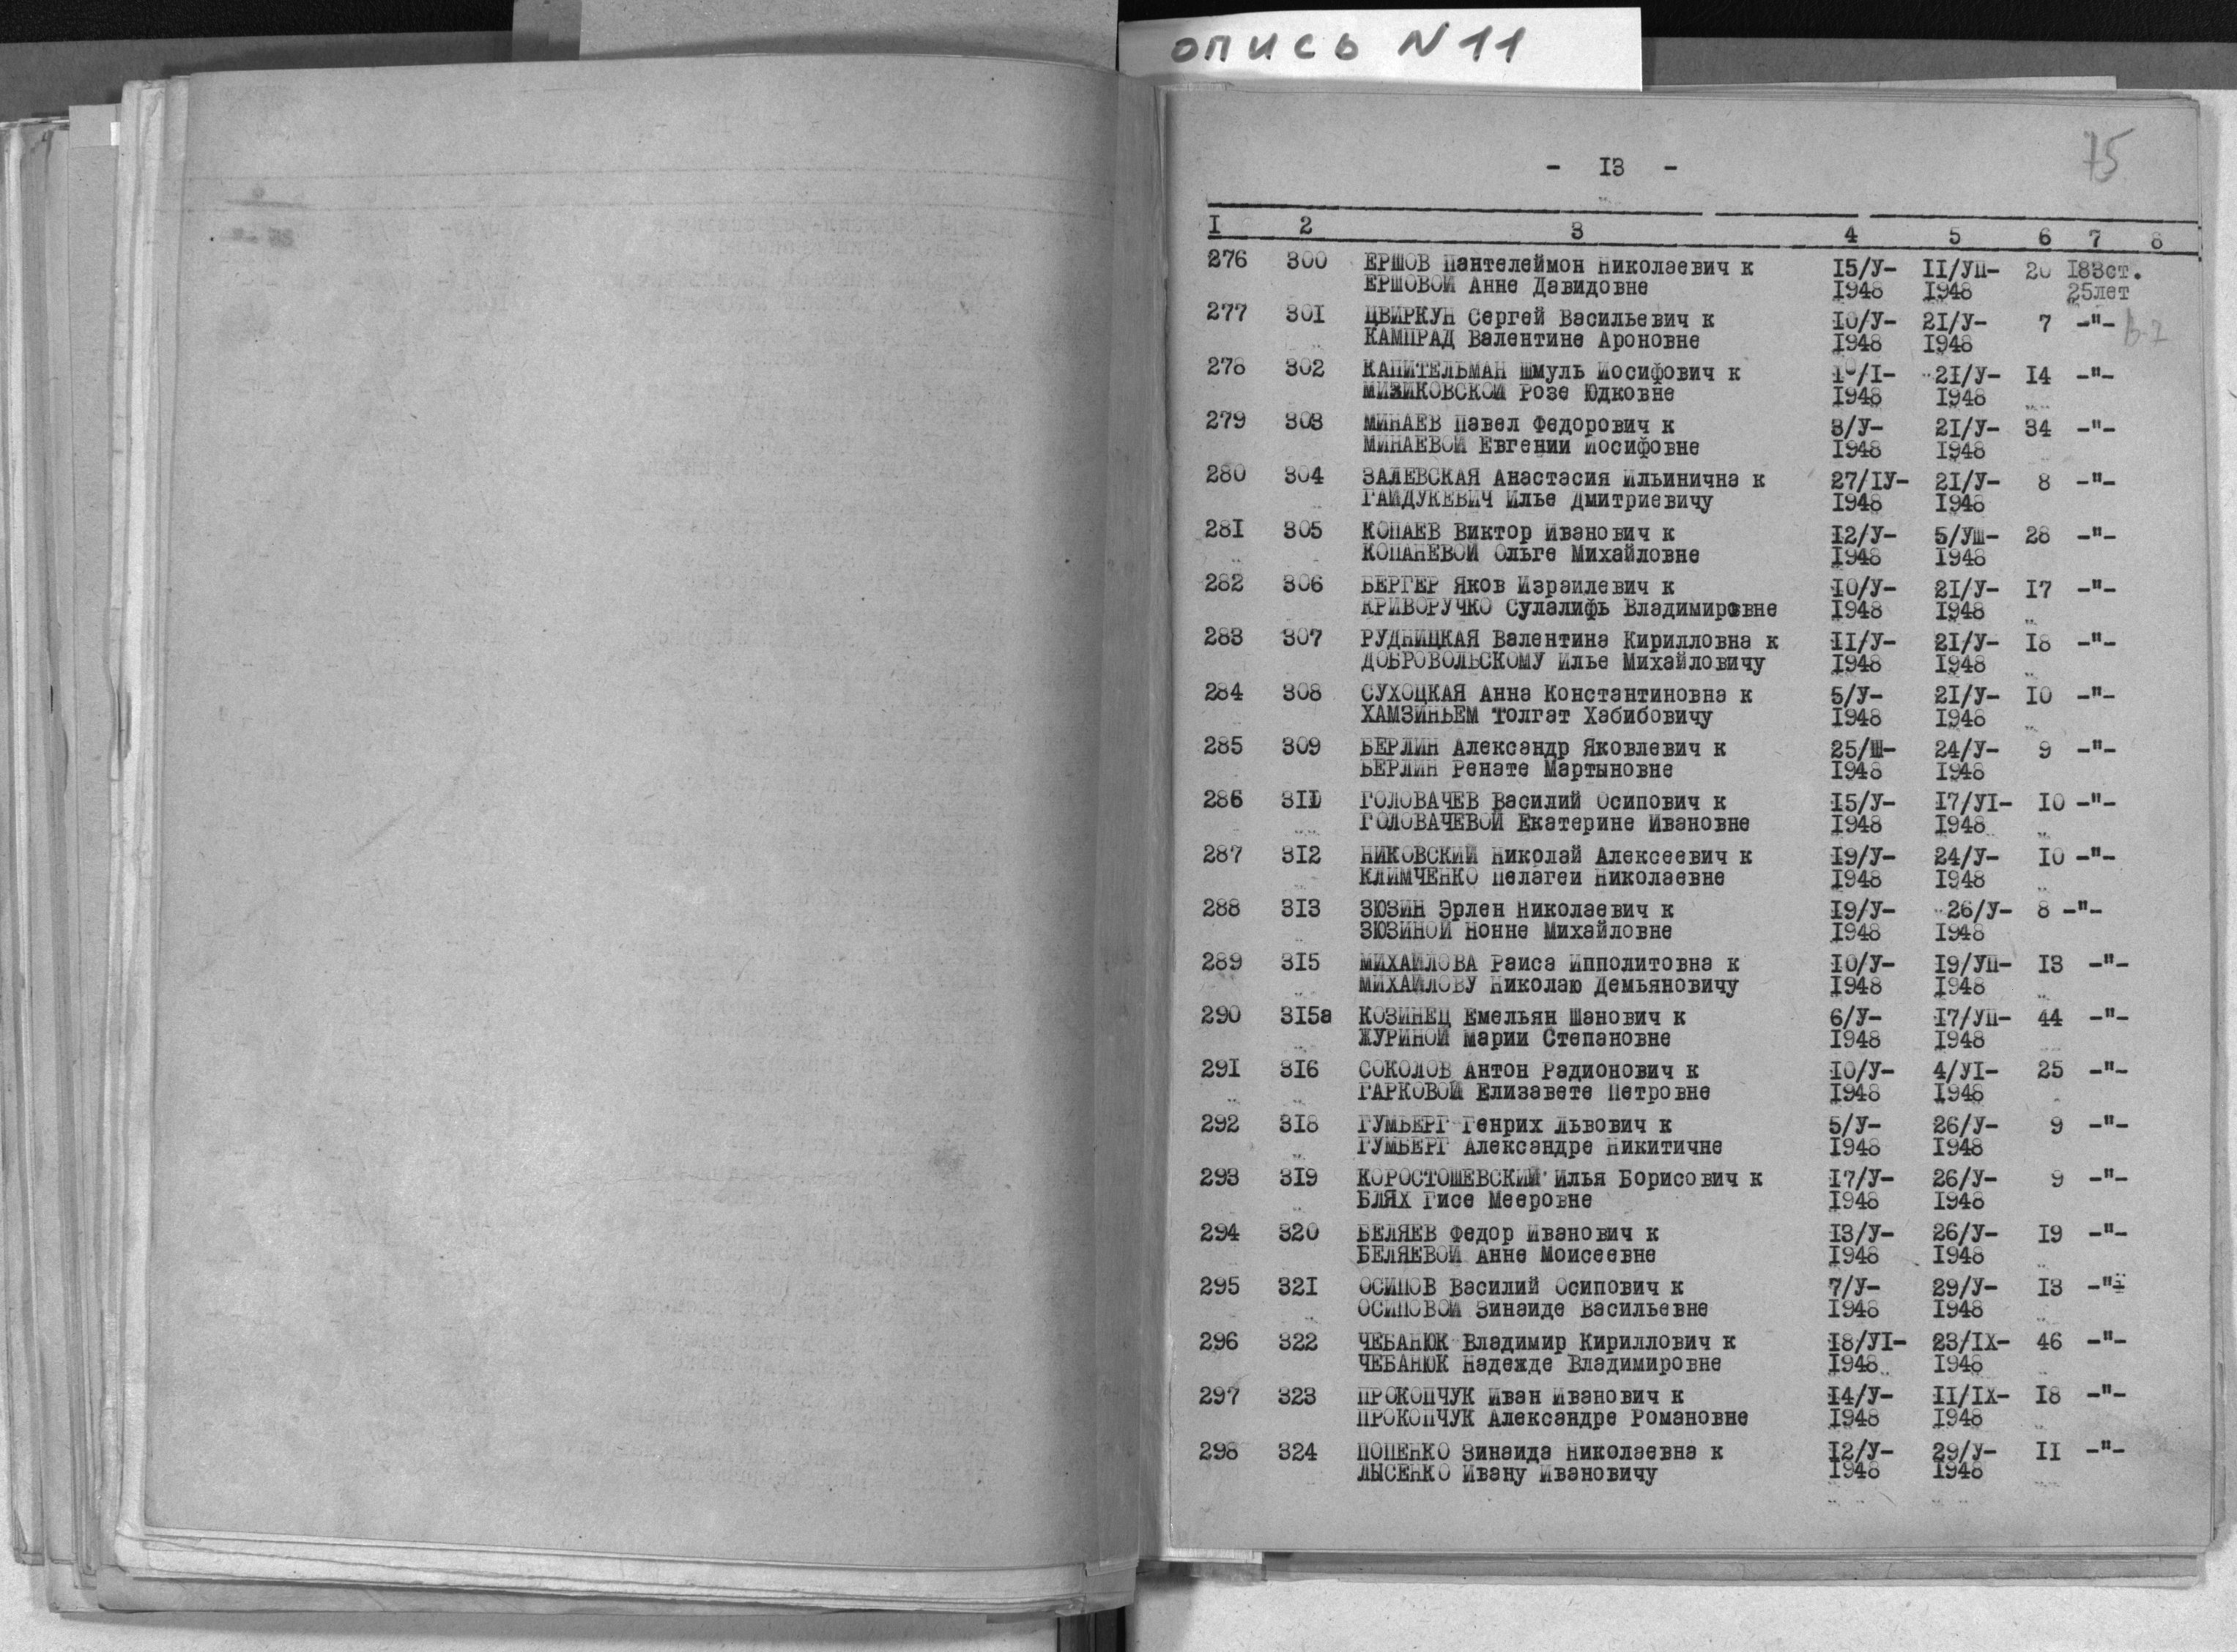 опись N 11
75
- I3 -
I 2 3 4 5 6 7 8
276 300 ЕРШОВ Пантелеймон Николаевич к I5/У- II/УП- 20 I83ст.
ЕРШОВОЙ Анне Давидовне I948 I948 25лет
277 30I ЦВИРКУН Сергей Васильевич к I0/У- 2I/У- 7 -"-
КАМПРАД Валентине Ароновне I948 I948
278 302 КАПИТЕЛЬМАН Шмуль Иосифович к I0/I- 2I/У- I4 -"-
МИЗИКОВСКОЙ Розе Юдковне I948 I948
279 303 МИНАЕВ Павел Федорович к 3/У- 2I/У- 34 -"-
МИНАЕВОЙ Евгении Иосифовне I948 I948
280 304 ЗАЛЕВСКАЯ Анастасия Ильинична к 27/IУ- 2I/У- 8 -"-
ГАЙДУКЕВИЧ Илье Дмитриевичу I948 I948
28I 305 КОПАЕВ Виктор Иванович к I2/У- 5/УШ- 28 -"-
КОПАНЕВОЙ Ольге Михайловне I948 I948
282 306 БЕРГЕР Яков Израилевич к I0/У- 2I/У- I7 -"-
КРИВОРУЧКО Сулалифь Владимировне I948 I948
283 307 РУДНИЦКАЯ Валентина Кирилловна к II/У- 2I/У- I8 -"-
ДОБРОВОЛЬСКОМУ Илье Михайловичу I948 I948
284 308 СУХОЦКАЯ Анна Константиновна к 5/У- 2I/У- I0 -"-
ХАМЗИНЬЕМ Толгат Хабибовичу I948 I948
285 309 БЕРЛИН Александр Яковлевич к 25/Ш- 24/У- 9 -"-
БЕРЛИН Ренате Мартыновне I948 I948
286 3II ГОЛОВАЧЕВ Василий Осипович к I5/У- I7/УI- I0 -"-
ГОЛОВАЧЕВОЙ Екатерине Ивановне I948 I948
287 3I2 НИКОВСКИЙ Николай Алексеевич к I9/У- 24/У- I0 -"-
КЛИМЧЕНКО Пелагеи Николаевне I948 I948
288 3I3 ЗЮЗИН Эрлен Николаевич к I9/У- 26/У- 8 -"-
ЗЮЗИНОЙ Нонне Михайловне I948 I948
289 3I5 МИХАЙЛОВА Раиса Ипполитовна к I0/У- I9/УП- I3 -"-
МИХАЙЛОВУ Николаю Демьяновичу I948 I948
290 3I5а КОЗИНЕЦ Емельян Шанович к 6/У- I7/УП- 44 -"-
ЖУРИНОЙ Марии Степановне I948 I948
29I 3I6 СОКОЛОВ Антон Радионович к I0/У- 4/УI- 25 -"-
ГАРКОВОЙ Елизавете Петровне I948 I948
292 3I8 ГУМБЕРГ Генрих Львович к 5/У- 26/У- 9 -"-
ГУМБЕРГ Александре Никитичне I948 I948
293 3I9 КОРОСТОШЕВСКИЙ Илья Борисович к I7/У- 26/У- 9 -"-
БЛЯХ Гисе Мееровне I948 I948
294 320 БЕЛЯЕВ Федор Иванович к I3/У- 26/У- I9 -"-
БЕЛЯЕВОЙ Анне Моисеевне I948 I948
295 32I ОСИПОВ Василий Осипович к 7/У- 29/У- I3 -"-
ОСИПОВОЙ Зинаиде Васильевне I948 I948
296 322 ЧЕБАНЮК Владимир Кириллович к I8/УI- 23/IХ- 46 -"-
ЧЕБАНЮК Надежде Владимировне I948 I948
297 323 ПРОКОПЧУК Иван Иванович к I4/У- II/IХ- I8 -"-
ПРОКОПЧУК Александре Романовне I948 I948
298 324 ПОПЕНКО Зинаида Николаевна к I2/У- 29/У- II -"-
ЛЫСЕНКО Ивану Ивановичу I948 I948